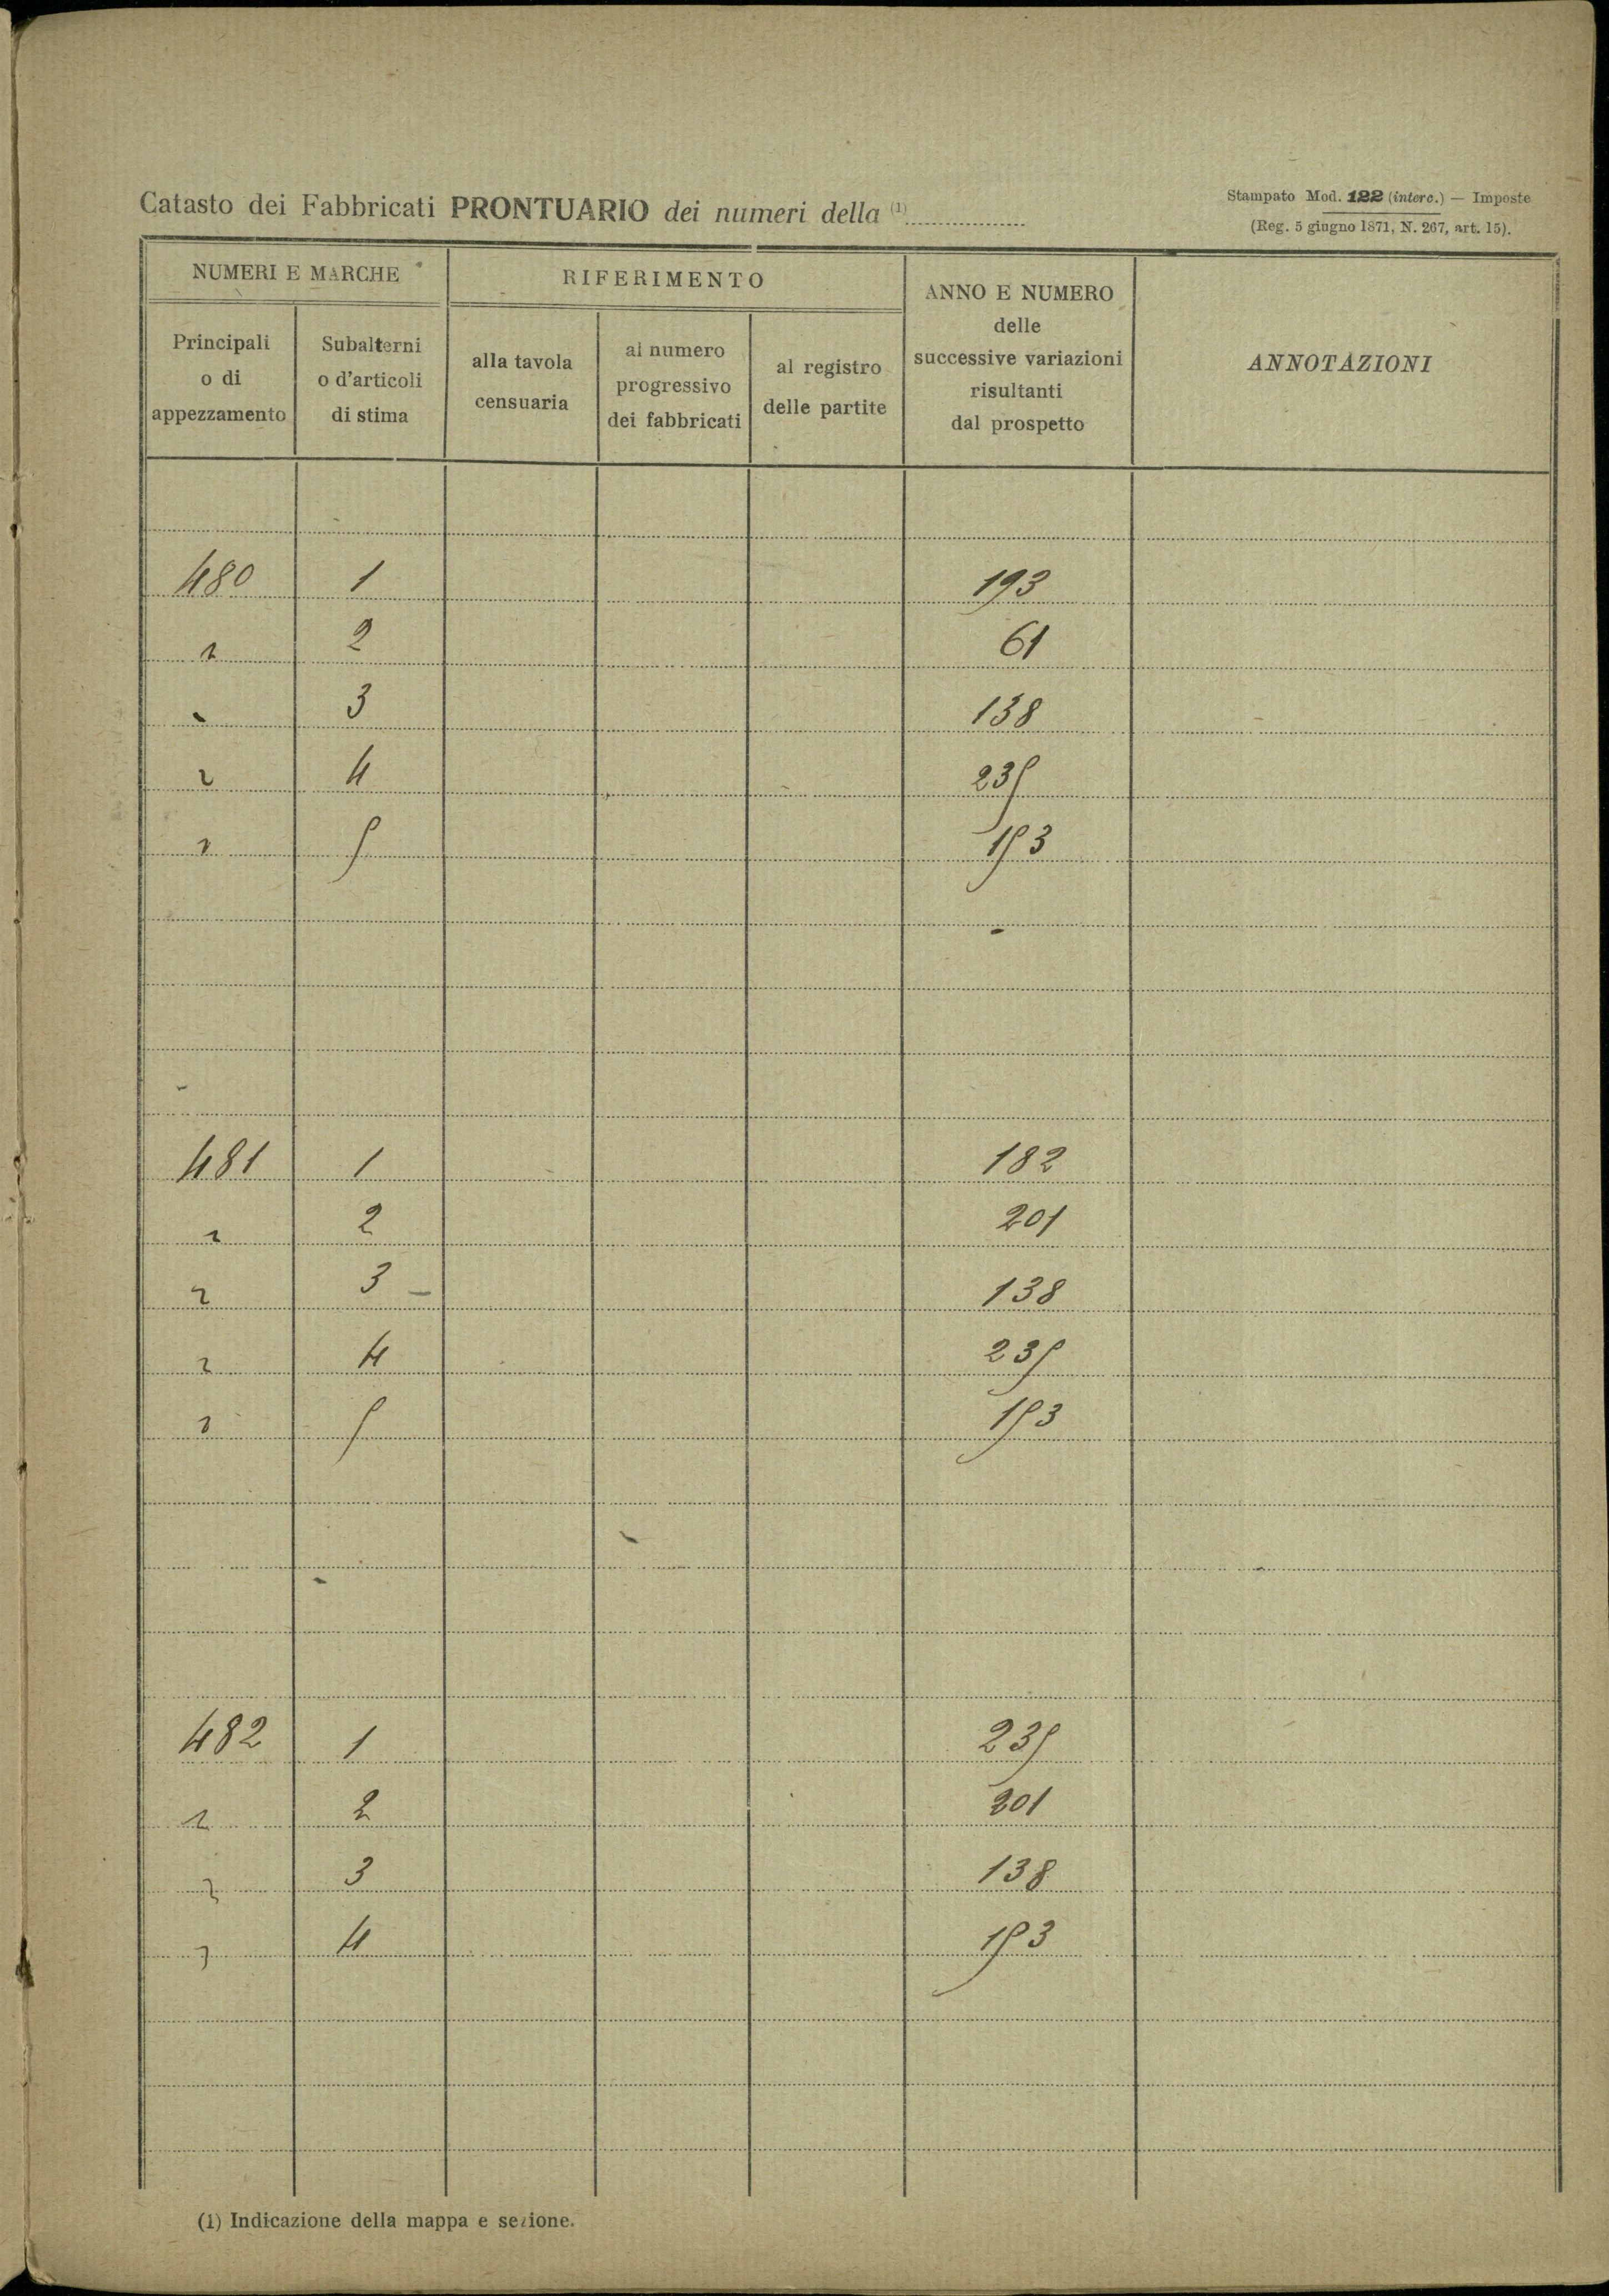 Catasto dei Fabbricati PRONTUARIO dei numeri della (1)
Stampato Mod. 122 (interc.) — Imposte
(Reg. 5 giugno 1871, N. 267, art. 15).
NUMERI E MARCHE
RIFERIMENTO
ANNO E NUMERO
delle
successive variazioni
risultanti
dal prospetto
ANNOTAZIONI
Principali
o di
appezzamento
Subalterni
o d'articoli
di stima
alla tavola
censuaria
al numero
progressivo
dei fabbricati
al registro
delle partite
480 1 193
" 2 61
" 3 138
" 4 235
" 5 153
481 1 182
" 2 201
" 3 138
" 4 235
" 5 153
482 1 235
" 2 201
" 3 138
" 4 153
(1) Indicazione della mappa e sezione.